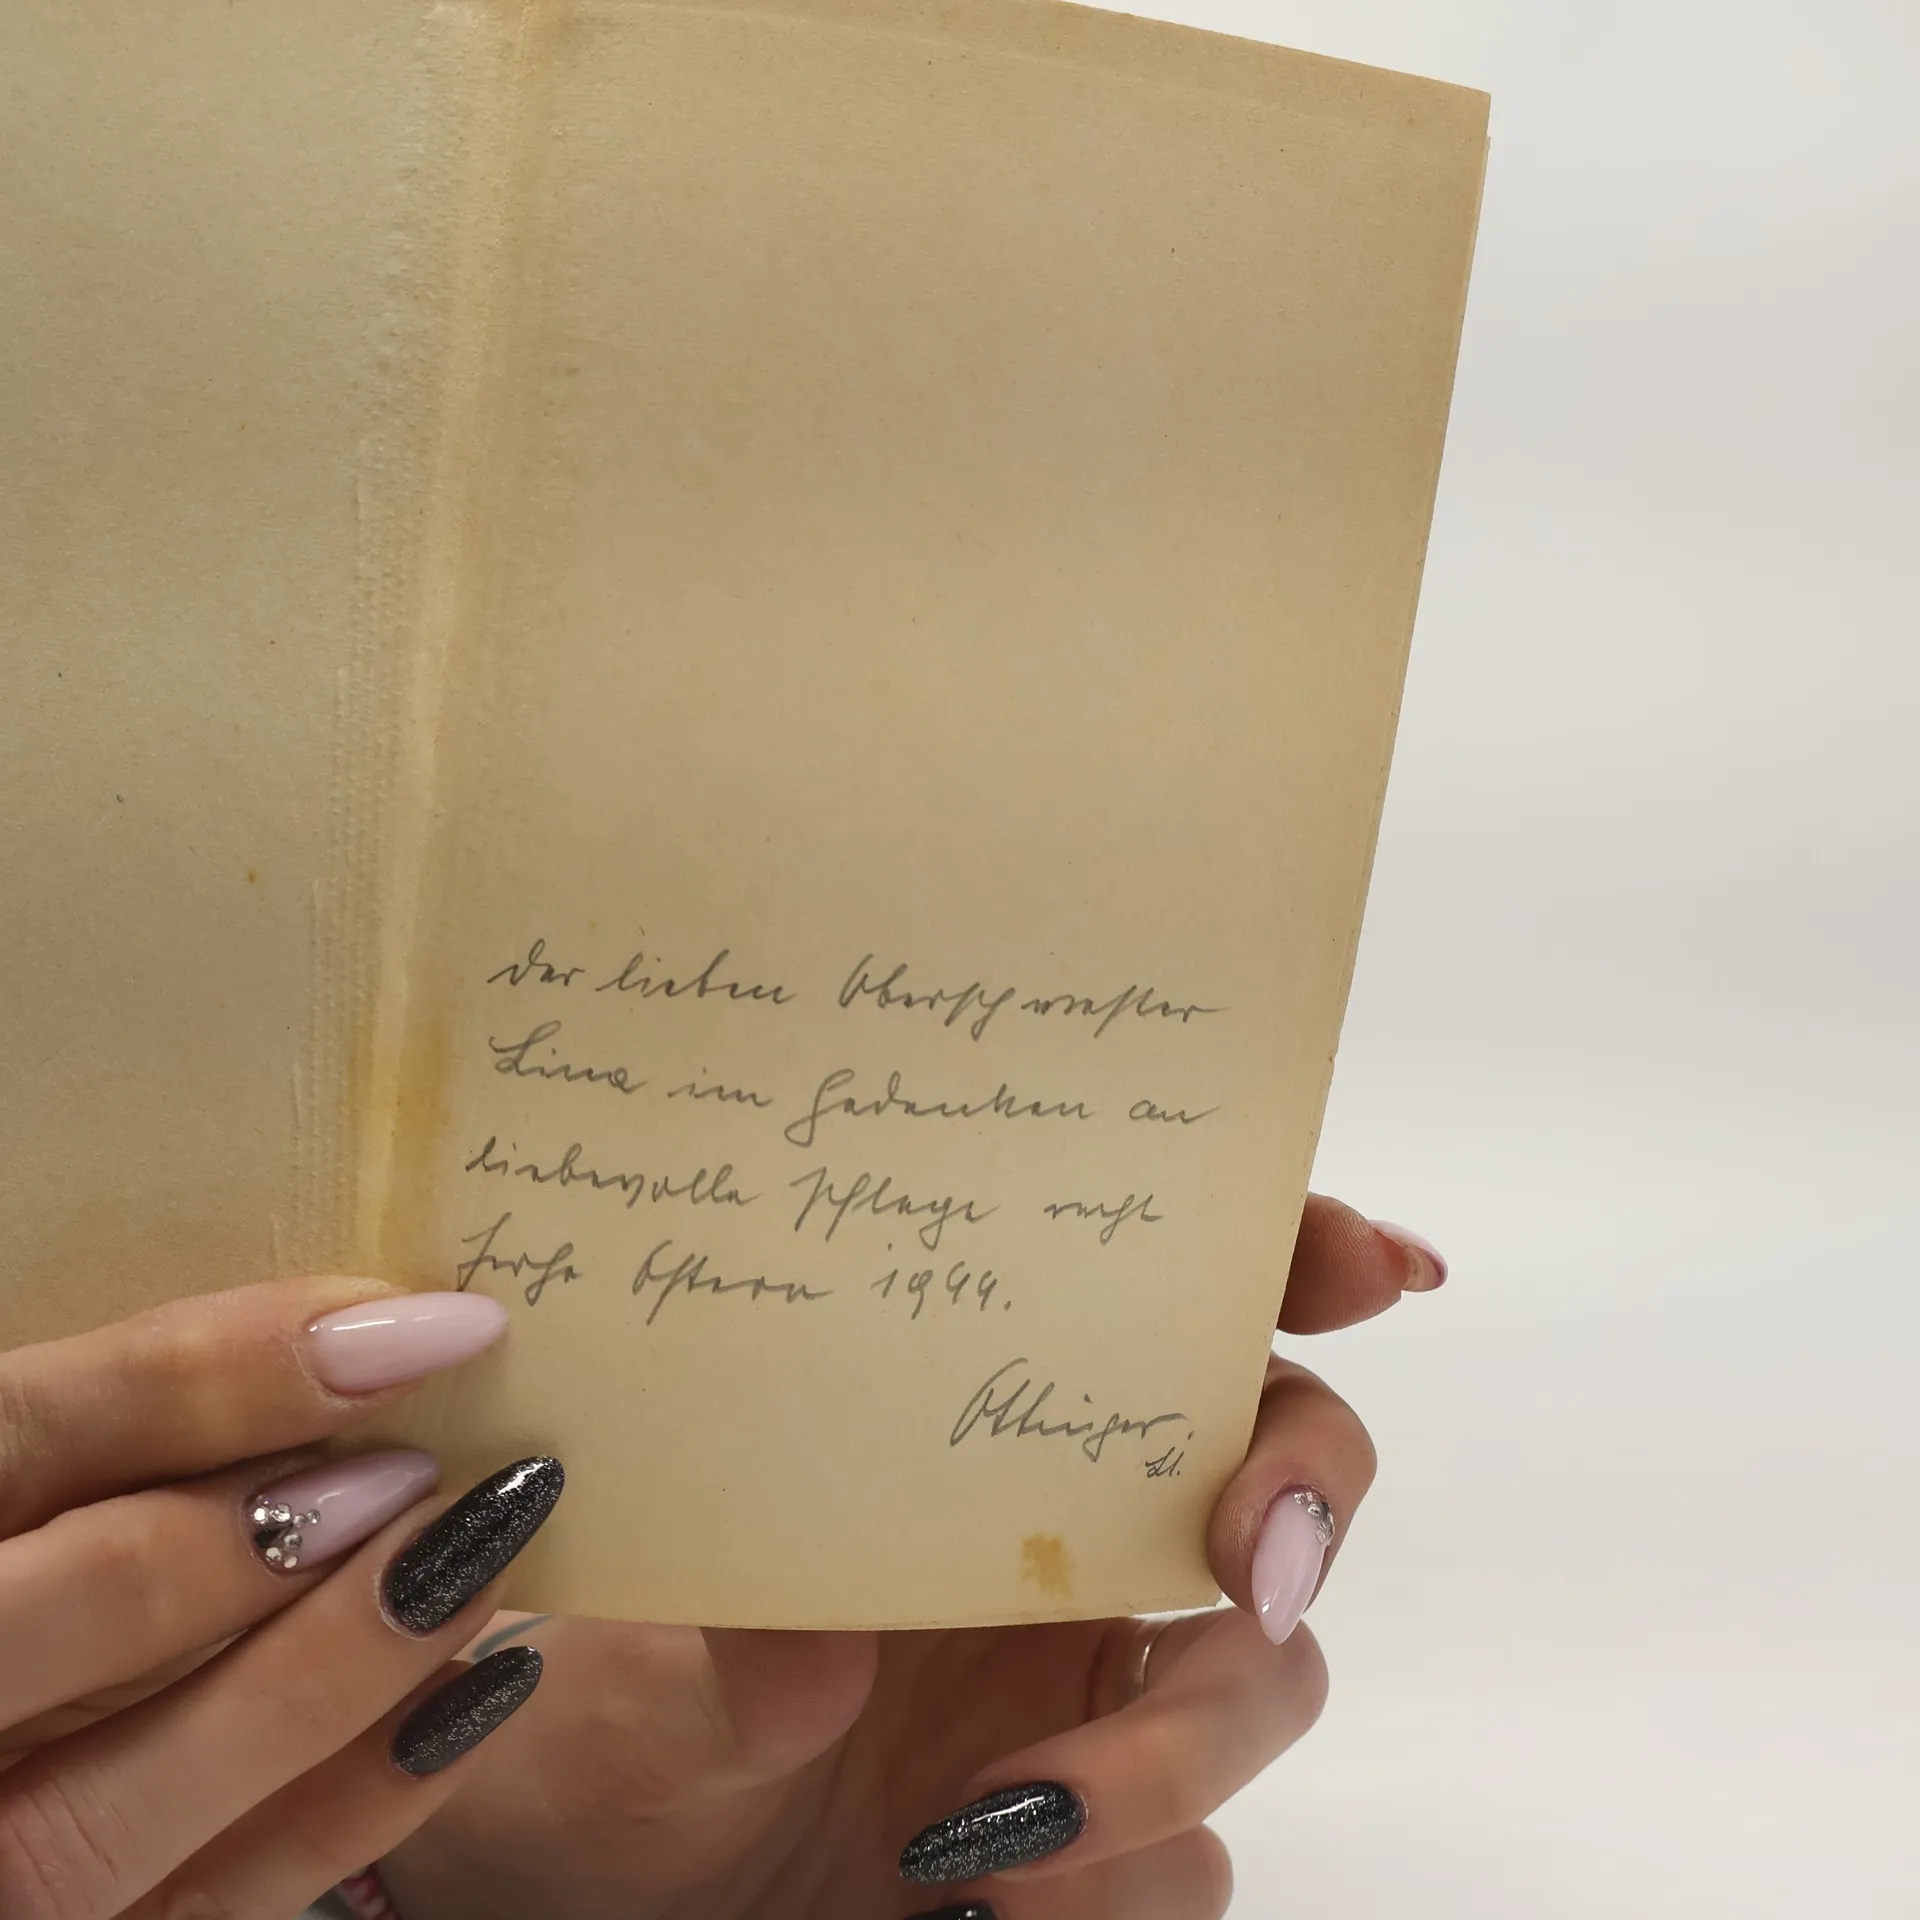 Der lieben Oberschwester
Lina im Gedenken an
liebevolle Pflege recht
frohe Ostern 1944.
Ottinger.
Lt.